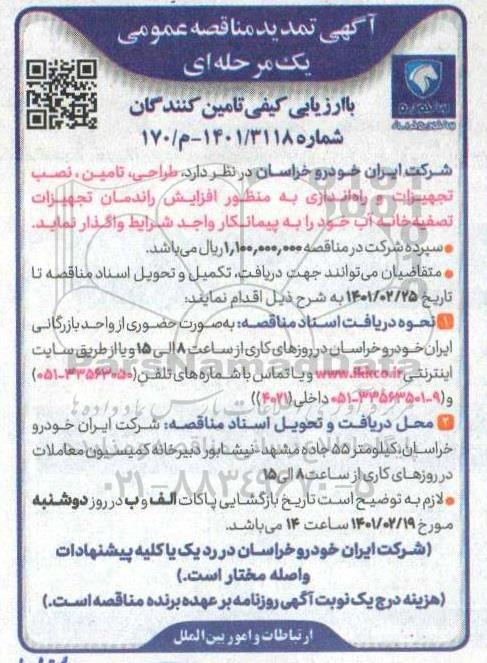 آگهی تمدید مناقصه عمومی
یک مرحله ای
با ارزیابی کیفی تامین کنندگان
شماره ۱۴۰۱/۳۱۱۸-م/۱۷۰
شرکت ایران خودرو خراسان در نظر دارد، طراحی، تامین، نصب
تجهیزات و راه‌اندازی به منظور افزایش راندمان تجهیزات
تصفیه‌خانه آب خود را به پیمانکار واجد شرایط واگذار نماید.
سپرده شرکت در مناقصه ۱,۱۰۰,۰۰۰,۰۰۰ ریال می‌باشد.
متقاضیان می‌توانند جهت دریافت، تکمیل و تحویل اسناد مناقصه تا
تاریخ ۱۴۰۱/۰۲/۲۵ به شرح ذیل اقدام نمایند:
۱ نحوه دریافت اسناد مناقصه: به‌صورت حضوری از واحد بازرگانی
ایران خودرو خراسان در روزهای کاری از ساعت ۸ الی ۱۵ و یا از طریق سایت
اینترنتی www.ikkco.ir و یا تماس با شماره های تلفن (۳۳۵۶۳۰۵۰-۰۵۱)
و (۹-۳۳۵۶۳۵۰۱-۰۵۱ داخلی (۴۰۲۱))
۲ محل دریافت و تحویل اسناد مناقصه: شرکت ایران خودرو
خراسان، کیلومتر ۵۵ جاده مشهد - نیشابور دبیرخانه کمیسیون معاملات
در روزهای کاری از ساعت ۸ الی ۱۵
۰۲۱-۸۸۳۴۹۶۷۰-۵
لازم به توضیح است تاریخ بازگشایی پاکات الف و ب در روز دوشنبه
مورخ ۱۴۰۱/۰۲/۱۹ ساعت ۱۴ می‌باشد.
(شرکت ایران خودرو خراسان در رد یک یا کلیه پیشنهادات
واصله مختار است.)
(هزینه درج یک نوبت آگهی روزنامه بر عهده برنده مناقصه است.)
ارتباطات و امور بین الملل